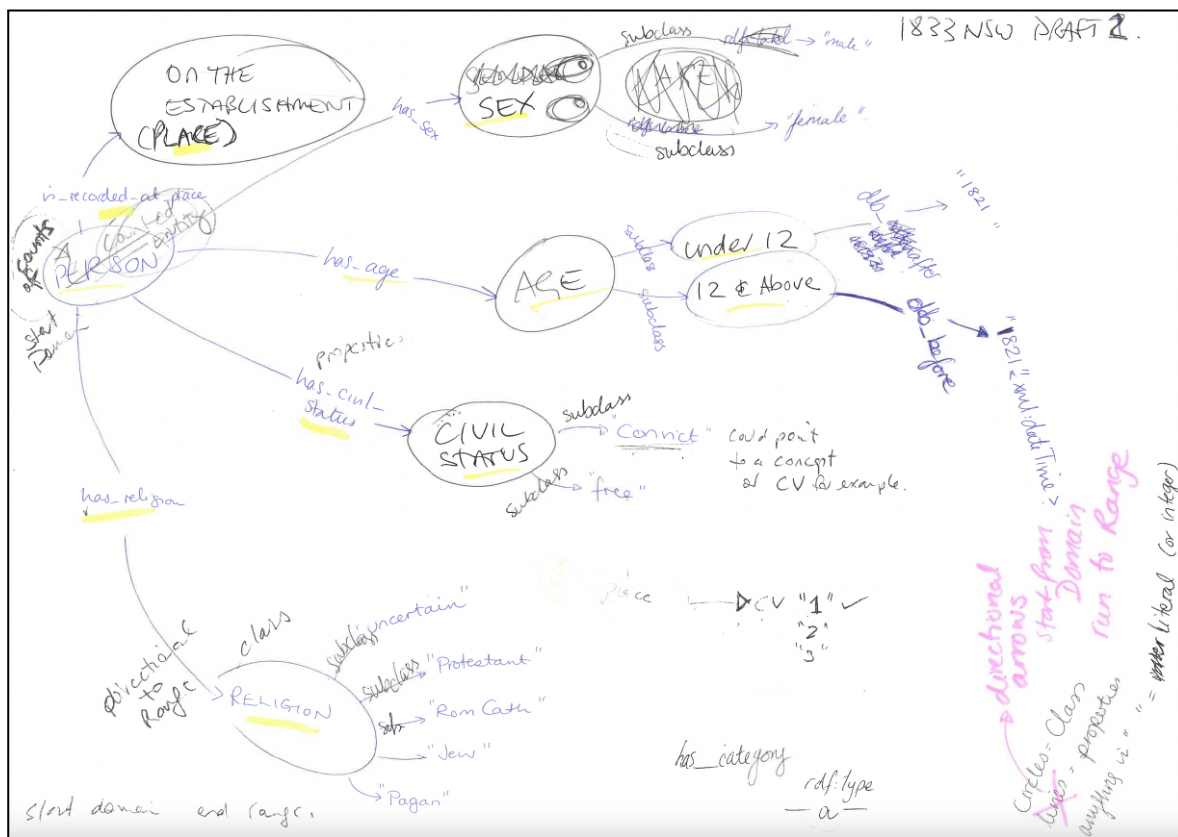 1833 NSW DRAFT 2.
ON THE
ESTABLISHMENT
(PLACE)
is_recorded_at_place
counted
entity
counts
of
PERSON
start
Domain
has_sex
SEX
subclass
rdf:label
"male"
"female"
subclass
has_age
AGE
subclass
under 12
subclass
12 & Above
dob_
after
"1821"
dob_before
"1821"<xml:dateTime>
properties
has_civil_
status
CIVIL
STATUS
subclass
"Convict"
could point
to a concept
or CV for example.
subclass
"free"
has_religion
directional
to
Range
class
RELIGION
subclass
"uncertain"
subclass
"Protestant"
sub
"Rom Cath"
"Jew"
"Pagan"
place
CV "1" ✓
"2"
"3"
has_category
rdf:type
a
start domain end range.
directional
arrows
start from
Domain
run to Range
Circles = Class
lines = properties
anything in " " = literal (or integer)